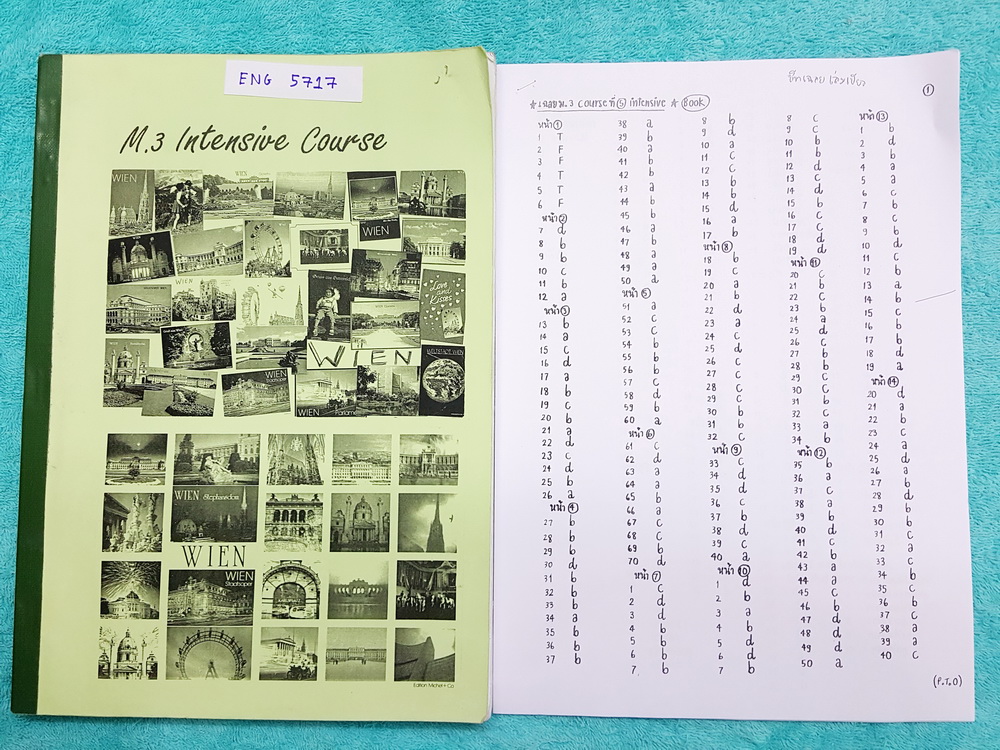 ENG 5717
M.3 Intensive Course
WIEN
WIEN
WIEN
WIEN
Love and Kisses
WIEN
WELTSTADT WIEN
WIEN
Staatsoper
WIEN
Parlament
WIEN Stephansdom
WIEN
WIEN
Staatsoper
Edition Michel + Co
①
★ เฉลย ม.3 Course ที่ ⑤ intensive ★ Book
หน้า ①
1 T
2 F
3 F
4 T
5 T
6 F
หน้า ②
7 d
8 b
9 b
10 c
11 b
12 a
หน้า ③
13 b
14 a
15 c
16 d
17 a
18 b
19 c
20 b
21 a
22 d
23 c
24 d
25 b
26 a
หน้า ④
27 b
28 b
29 b
30 d
31 b
32 b
33 b
34 a
35 b
36 b
37 b
38 a
39 b
40 a
41 b
42 b
43 a
44 b
45 b
46 a
47 b
48 a
49 a
50 a
หน้า ⑤
51 a
52 c
53 c
54 b
55 b
56 b
57 c
58 d
59 b
60 a
หน้า ⑥
61 c
62 d
63 a
64 a
65 b
66 a
67 c
68 c
69 b
70 d
หน้า ⑦
1 c
2 d
3 d
4 b
5 b
6 b
7 b
8 b
9 d
10 a
11 c
12 c
13 b
14 b
15 d
16 a
17 b
หน้า ⑧
18 b
19 c
20 a
21 b
22 d
23 a
24 c
25 d
26 c
27 c
28 c
29 c
30 b
31 b
32 c
หน้า ⑨
33 c
34 d
35 d
36 c
37 b
38 d
39 c
40 a
หน้า ⑩
1 d
2 b
3 a
4 b
5 d
6 d
7 b
8 c
9 c
10 b
11 b
12 d
13 c
14 d
15 b
16 c
17 c
18 d
19 d
หน้า ⑪
20 c
21 b
22 c
23 b
24 a
25 d
26 c
27 b
28 b
29 c
30 c
31 b
32 c
33 a
34 b
หน้า ⑫
35 b
36 a
37 c
38 a
39 b
40 d
41 c
42 b
43 a
44 a
45 c
46 b
47 d
48 d
49 d
50 a
หน้า ⑬
1 b
2 d
3 b
4 a
5 a
6 c
7 b
8 c
9 b
10 d
11 c
12 b
13 a
14 b
15 c
16 b
17 b
18 d
19 a
หน้า ⑭
20 d
21 a
22 b
23 c
24 a
25 d
26 a
27 b
28 d
29 b
30 b
31 c
32 a
33 c
34 b
35 c
36 b
37 c
38 a
39 a
40 c
(P.T.O)